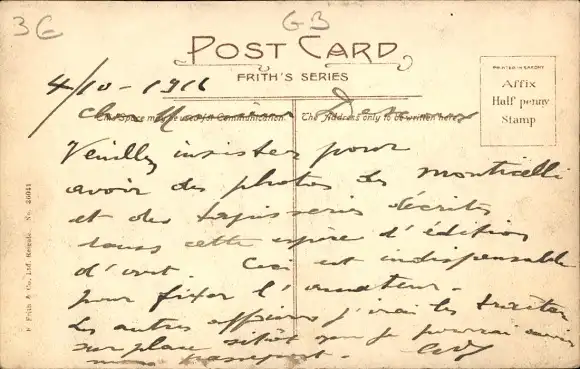 3G
GB
POST CARD
FRITH'S SERIES
PRINTED IN SAXONY
Affix
Half penny
Stamp
4/10-1916
This Space may be used for Communication.
The Address only to be written here.
Veuillez insister pour
avoir des photos des monticelli
et des tapisseries décrites
sous cette espèce d'édition
d'art. Ceci est indispensable
pour fixer l'amateur.
Les autres affaires j'irai les traiter
sur place sitôt que je pourrai avoir
mon passeport.
F Frith & Co., Ltd. Reigate. No.